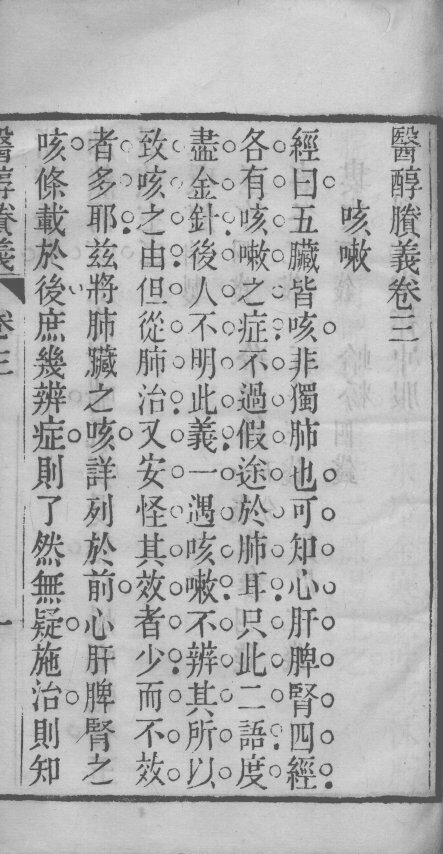 醫醇賸義卷三
咳嗽
經曰五臟皆咳非獨肺也可知心肝脾腎四經
各有咳嗽之症不過假途於肺耳只此二語度
盡金針後人不明此義一遇咳嗽不辨其所以
致咳之由但從肺治又安怪其效者少而不效
者多耶茲將肺臟之咳詳列於前心肝脾腎之
咳條載於後庶幾辨症則了然無疑施治則知
醫醇賸義 卷三 一